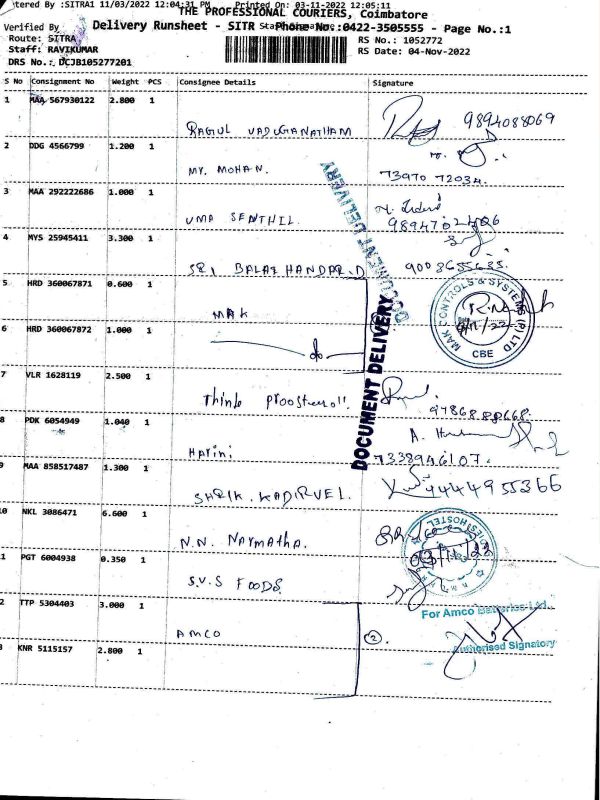 tered By :SITRA1 11/03/2022 12:04:31 PM Printed On: 03-11-2022 12:05:11
THE PROFESSIONAL COURIERS, Coimbatore
Verified By
Delivery Runsheet - SITR Phone No.:0422-3505555 - Page No.:1
Route: SITRA
RS No.: 1052772
Staff: RAVIKUMAR
RS Date: 04-Nov-2022
DRS No.: DCJB105277201
S No Consignment No Weight PCS Consignee Details Signature
1 MAA 567930122 2.800 1
RAGUL VADUGANATHAM 9894088069
2 DDG 4566799 1.200 1
MY. MOHAN. 73970 72034.
3 MAA 292222686 1.000 1
UMA SENTHIL.
4 MYS 25945411 3.300 1
SRI BALAJI HANDAR.D 9003655635.
5 HRD 360067871 0.600 1
MAK
MAK CONTROLS & SYSTEMS (P) LTD
CBE
6 HRD 360067872 1.000 1
do
7 VLR 1628119 2.500 1
Think 9786888668.
8 PDK 6054949 1.040 1
Harini 7338946107.
9 MAA 858517487 1.300 1
SHEIK. KADIRVEL. 9444955366
10 NKL 3086471 6.600 1
N.N. Narmatha.
03/11/22
1 PGT 6004938 0.350 1
S.V.S FOODS
2 TTP 5304403 3.000 1
For Amco Batteries Ltd.,
AMCO (2).
Authorised Signatory
3 KNR 5115157 2.800 1
DOCUMENT DELIVERY
DOCUMENT DELIVERY